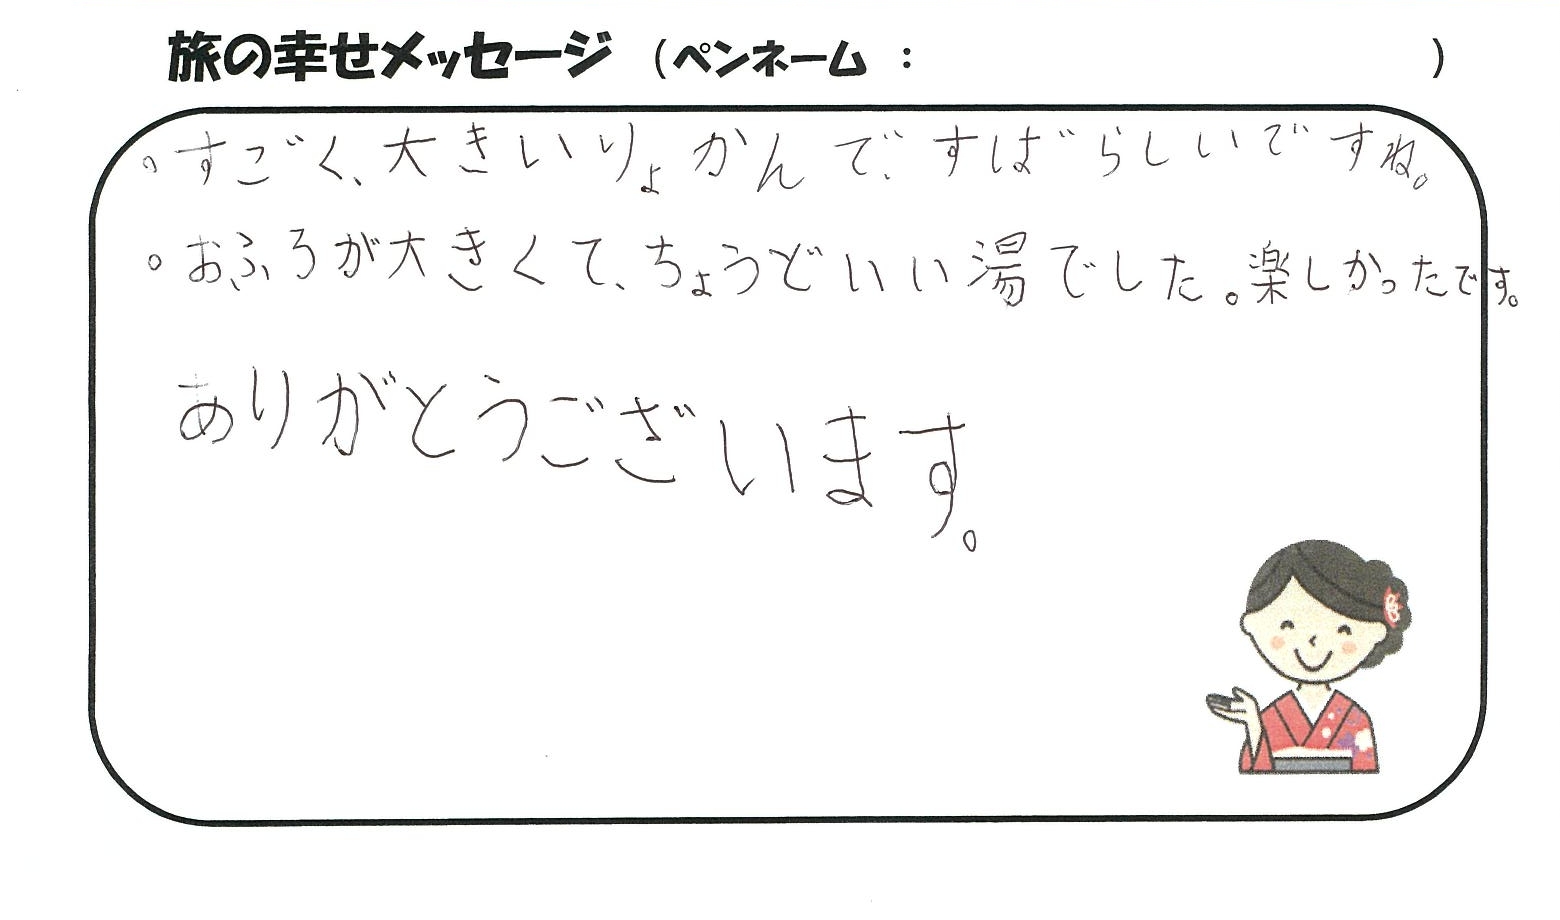 旅の幸せメッセージ （ペンネーム ： ）
。すごく、大きいりょかんで、すばらしいですね。
。おふろが大きくて、ちょうどいい湯でした。楽しかったです。
ありがとうございます。